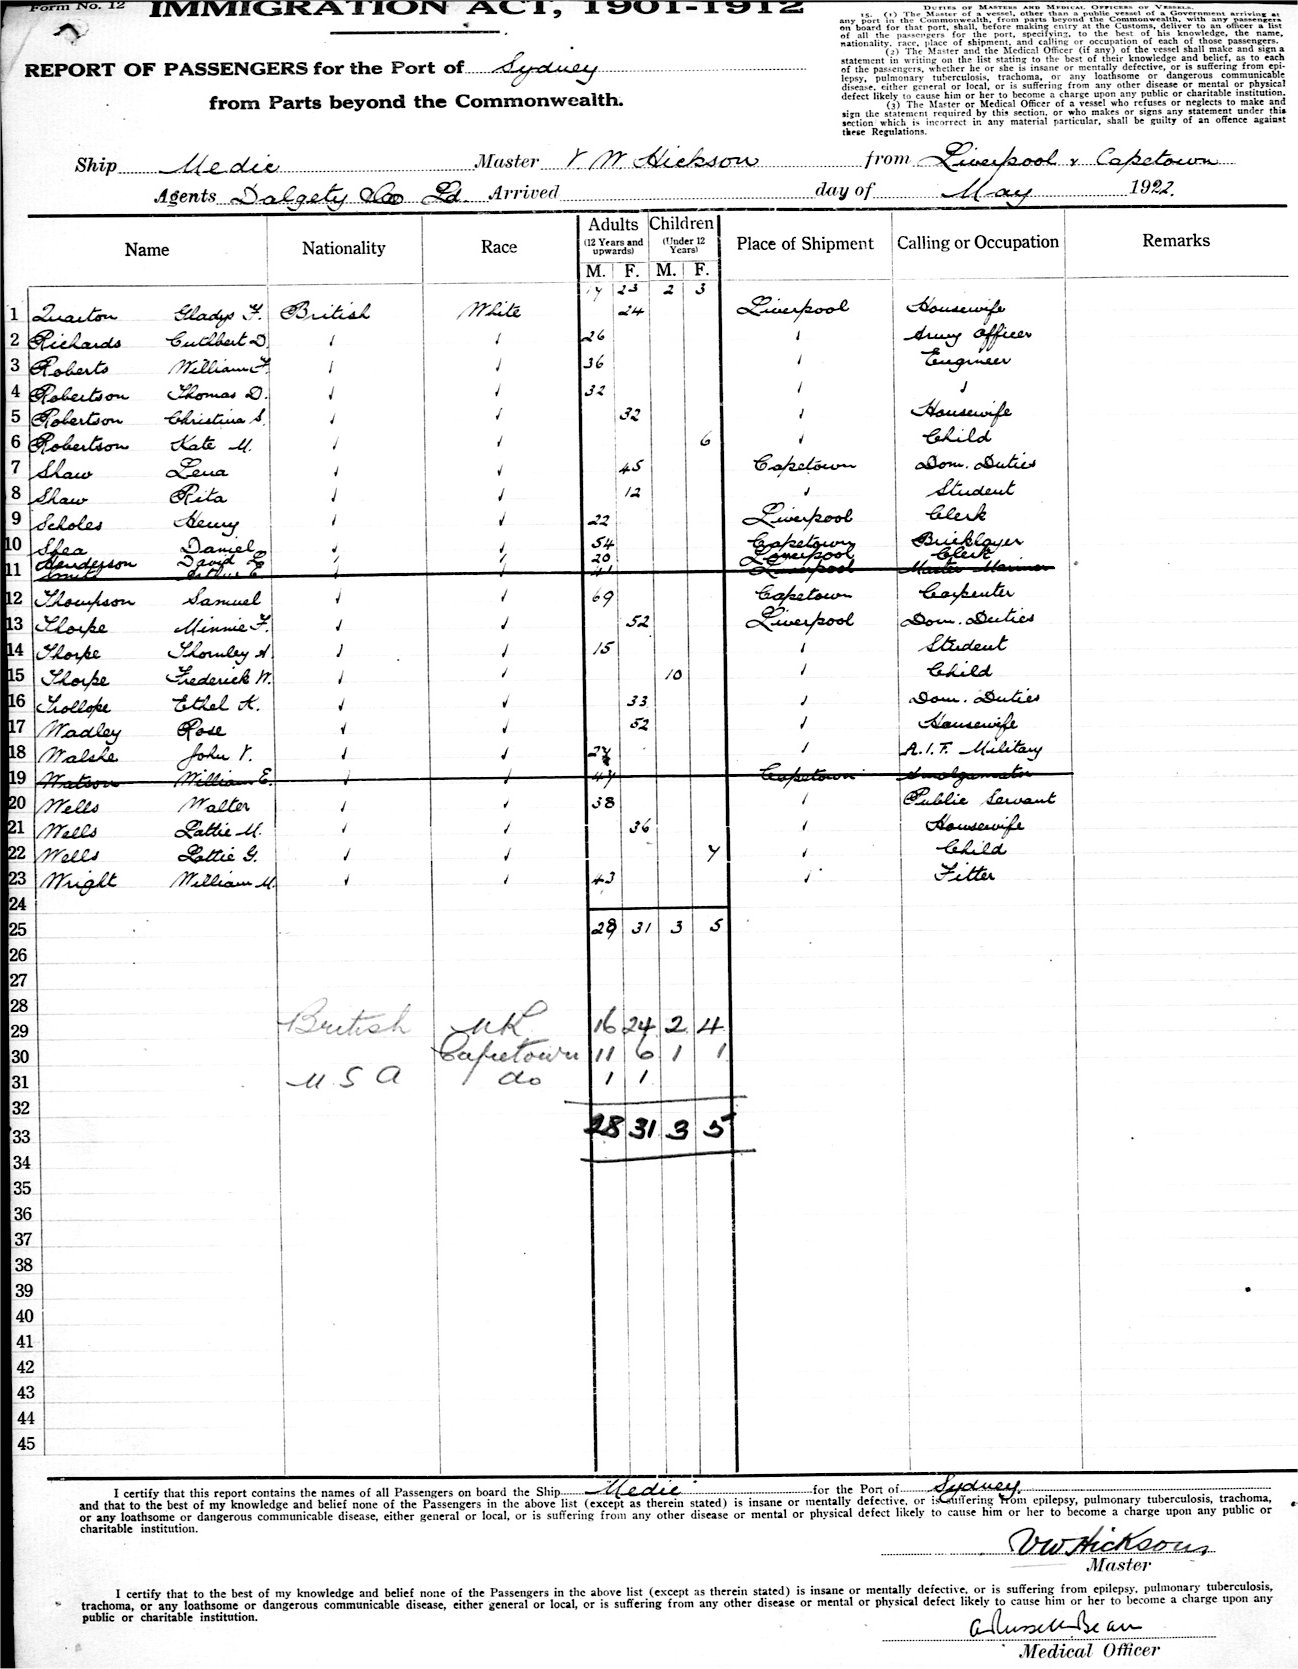 Form No. 12
IMMIGRATION ACT, 1901-1912
REPORT OF PASSENGERS for the Port of Sydney
from Parts beyond the Commonwealth.
DUTIES OF MASTERS AND MEDICAL OFFICERS OF VESSELS.
15. (1) The Master of a vessel, other than a public vessel of a Government arriving at
any port in the Commonwealth, from parts beyond the Commonwealth, with any passengers
on board for that port, shall, before making entry at the Customs, deliver to an officer a list
of all the passengers for the port, specifying, to the best of his knowledge, the name,
nationality, race, place of shipment, and calling or occupation of each of those passengers.
(2) The Master and the Medical Officer (if any) of the vessel shall make and sign a
statement in writing on the list stating to the best of their knowledge and belief, as to each
of the passengers, whether he or she is insane or mentally defective, or is suffering from epi-
lepsy, pulmonary tuberculosis, trachoma, or any loathsome or dangerous communicable
disease, either general or local, or is suffering from any other disease or mental or physical
defect likely to cause him or her to become a charge upon any public or charitable institution.
(3) The Master or Medical Officer of a vessel who refuses or neglects to make and
sign the statement required by this section, or who makes or signs any statement under this
section which is incorrect in any material particular, shall be guilty of an offence against
these Regulations.
Ship Medic Master V. W. Hickson from Liverpool & Capetown
Agents Dalgety & Co Ld. Arrived day of May 1922.
Name Nationality Race Adults (12 Years and upwards) M. F. Children (Under 12 Years) M. F. Place of Shipment Calling or Occupation Remarks
17 23 2 3
1 Quarton Gladys F. British White 24 Liverpool Housewife
2 Richards Cuthbert D. ✓ ✓ 26 ✓ Army Officer
3 Roberts William F. ✓ ✓ 36 ✓ Engineer
4 Robertson Thomas D. ✓ ✓ 32 ✓ ✓
5 Robertson Christina S. ✓ ✓ 32 ✓ Housewife
6 Robertson Kate M. ✓ ✓ 6 ✓ Child
7 Shaw Lena ✓ ✓ 45 Capetown Dom. Duties
8 Shaw Rita ✓ ✓ 12 ✓ Student
9 Scholes Henry ✓ ✓ 22 Liverpool Clerk
10 Shea Daniel ✓ ✓ 54 Capetown Bricklayer
Henderson David L ✓ ✓ 20 Liverpool Clerk
11 Smith Arthur E ✓ ✓ 41 Liverpool Master Mariner
12 Thompson Samuel ✓ ✓ 69 Capetown Carpenter
13 Thorpe Minnie F. ✓ ✓ 52 Liverpool Dom. Duties
14 Thorpe Thornley A. ✓ ✓ 15 ✓ Student
15 Thorpe Frederick W. ✓ ✓ 10 ✓ Child
16 Trollope Ethel K. ✓ ✓ 33 ✓ Dom. Duties
17 Wadley Rose ✓ ✓ 52 ✓ Housewife
18 Walshe John V. ✓ ✓ 27 ✓ A.I.F. Military
19 Watson William E. ✓ ✓ 47 Capetown Amalgamator
20 Wells Walter ✓ ✓ 38 ✓ Public Servant
21 Wells Lottie M. ✓ ✓ 36 ✓ Housewife
22 Wells Lottie G. ✓ ✓ 7 ✓ Child
23 Wright William M. ✓ ✓ 43 ✓ Fitter
24
25 28 31 3 5
26
27
28
29 British UK 16 24 2 4
30 Capetown 11 6 1 1
31 U S A do 1 1
32
33 28 31 3 5
34
35
36
37
38
39
40
41
42
43
44
45
I certify that this report contains the names of all Passengers on board the Ship Medic for the Port of Sydney,
and that to the best of my knowledge and belief none of the Passengers in the above list (except as therein stated) is insane or mentally defective, or is suffering from epilepsy, pulmonary tuberculosis, trachoma,
or any loathsome or dangerous communicable disease, either general or local, or is suffering from any other disease or mental or physical defect likely to cause him or her to become a charge upon any public or
charitable institution.
VW Hickson,
Master
I certify that to the best of my knowledge and belief none of the Passengers in the above list (except as therein stated) is insane or mentally defective, or is suffering from epilepsy, pulmonary tuberculosis,
trachoma, or any loathsome or dangerous communicable disease, either general or local, or is suffering from any other disease or mental or physical defect likely to cause him or her to become a charge upon any
public or charitable institution.
A Russell Bean
Medical Officer